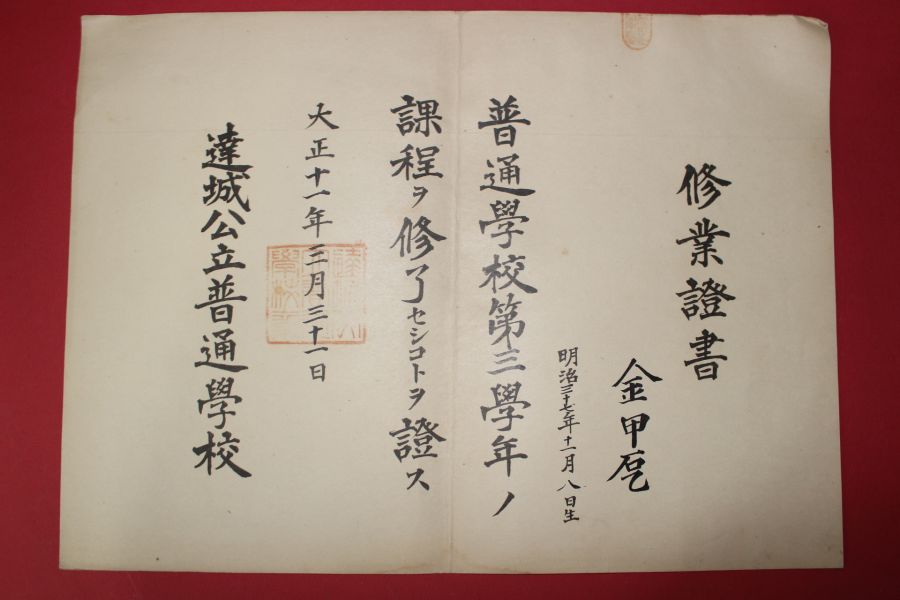 修業證書
金甲乭
明治三十七年十一月八日生
普通學校第三學年ノ
課程ヲ修了セシコトヲ證ス
大正十一年三月三十一日
達城公立普通學校